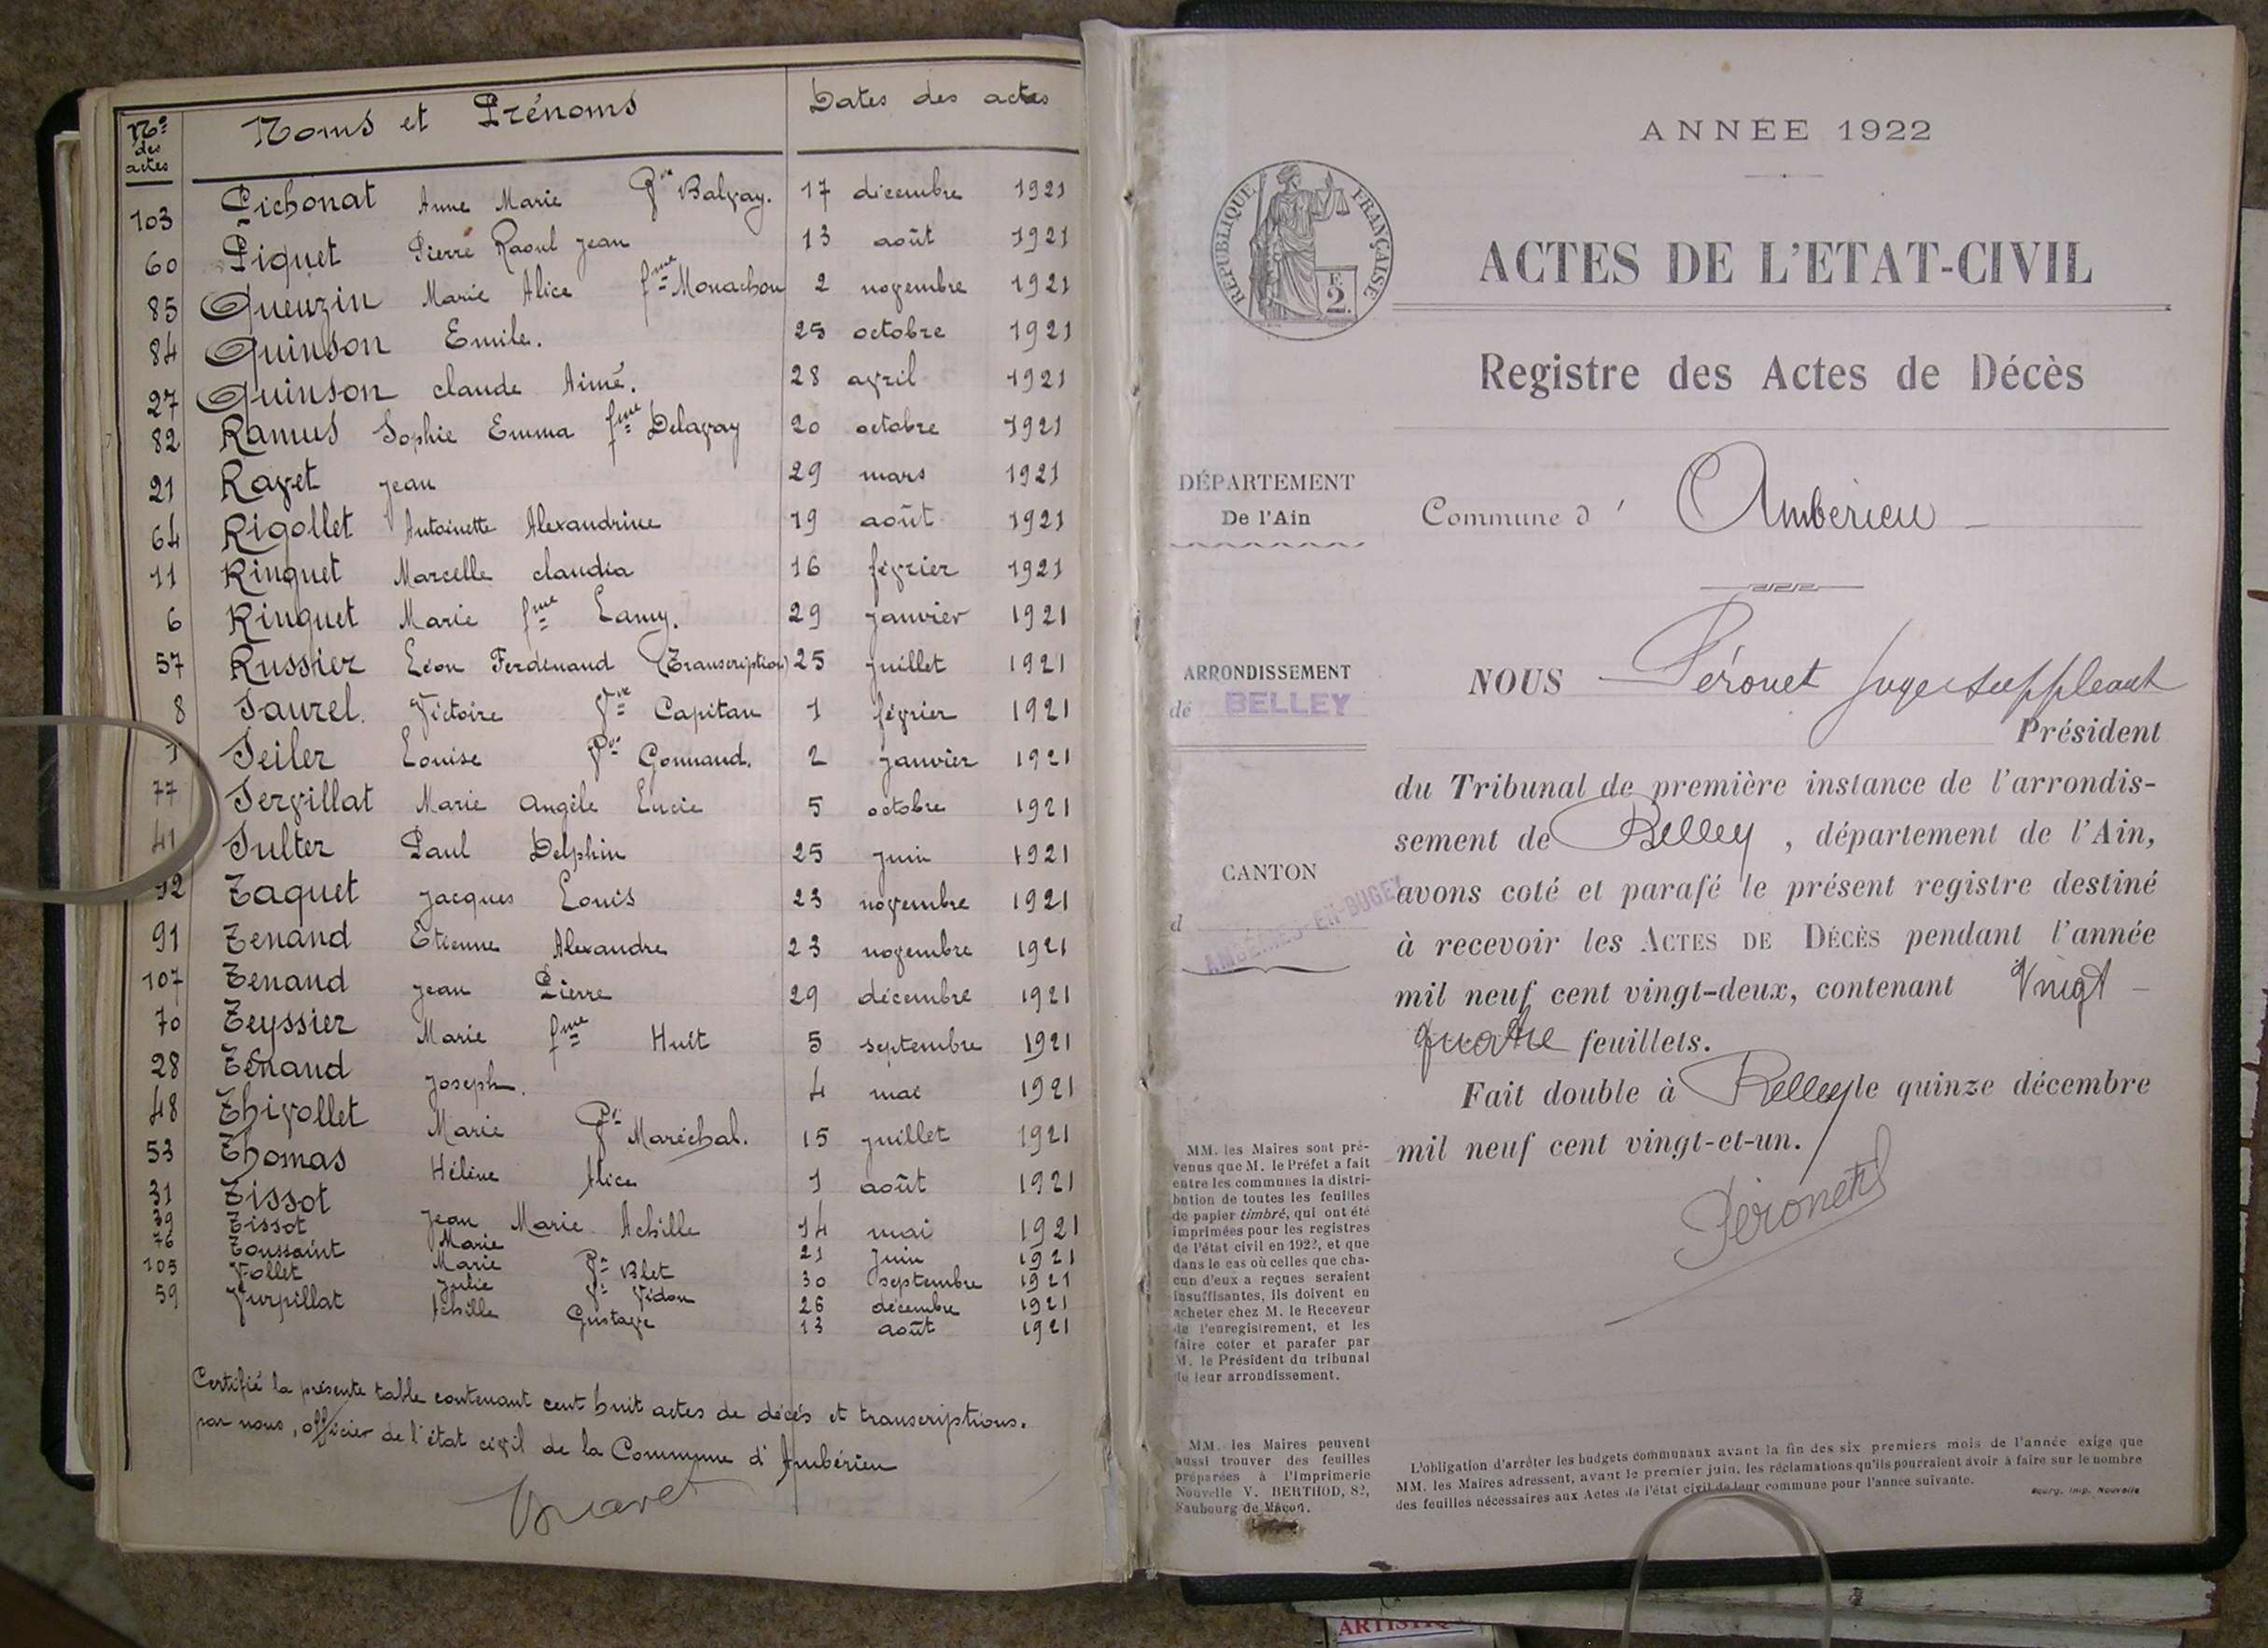 Nos des actes | Noms et Prénoms | Dates des actes
103 Pichonat Anne Marie Vve Balvay. 17 décembre 1921
60 Piquet Pierre Raoul Jean 13 août 1921
85 Queuzin Marie Alice fme Monachon 2 novembre 1921
84 Quinson Emile. 25 octobre 1921
27 Quinson claude Aimé. 28 avril 1921
82 Ramus Sophie Emma fme Delavay 20 octobre 1921
21 Ravet Jean 29 mars 1921
64 Rigollet Antoinette Alexandrine 19 août 1921
11 Rinquet Marcelle claudia 16 février 1921
6 Rinquet Marie fme Lamy. 29 janvier 1921
57 Russier Léon Ferdinand (Transcription) 25 juillet 1921
8 Saurel. Victoire Vve Capitan 1 février 1921
1 Seiler Louise Vve Gonnand. 2 janvier 1921
77 Servillat Marie Angèle Lucie 5 octobre 1921
41 Sulter Paul Delphin 25 juin 1921
92 Taquet Jacques Louis 23 novembre 1921
91 Tenand Etienne Alexandre 23 novembre 1921
107 Tenand Jean Pierre 29 décembre 1921
70 Teyssier Marie fme Huit 5 septembre 1921
28 Ténaud Joseph. 4 mai 1921
48 Thivollet Marie Vve Maréchal. 15 juillet 1921
53 Thomas Hélène Alice 1 août 1921
31 Tissot Jean Marie Achille 14 mai 1921
39 Tissot Marie 21 juin 1921
76 Toussaint Marie Ve Blet 30 septembre 1921
105 Vollet Julie Ve Vidon 26 décembre 1921
59 Vurpillat Achille Gustave 13 août 1921
Certifié la présente table contenant cent huit actes de décès et transcriptions.
par nous, officier de l'état civil de la Commune d'Ambérieu
ANNÉE 1922
RÉPUBLIQUE FRANÇAISE
F.
2.
ACTES DE L'ETAT-CIVIL
Registre des Actes de Décès
DÉPARTEMENT
De l'Ain
Commune d' Ambérieu
ARRONDISSEMENT
de BELLEY
CANTON
d AMBÉRIEU-EN-BUGEY
NOUS Péronet Juge suppléant
Président
du Tribunal de première instance de l'arrondis-
sement de Belley, département de l'Ain,
avons coté et parafé le présent registre destiné
à recevoir les ACTES DE DÉCÈS pendant l'année
mil neuf cent vingt-deux, contenant vingt
quatre feuillets.
Fait double à Belley le quinze décembre
mil neuf cent vingt-et-un.
Péronet
MM. les Maires sont pré-
venus que M. le Préfet a fait
entre les communes la distri-
bution de toutes les feuilles
de papier timbré, qui ont été
imprimées pour les registres
de l'état civil en 1922, et que
dans le cas où celles que cha-
cun d'eux a reçues seraient
insuffisantes, ils doivent en
acheter chez M. le Receveur
de l'enregistrement, et les
faire coter et parafer par
M. le Président du tribunal
de leur arrondissement.
MM. les Maires peuvent
aussi trouver des feuilles
préparées à l'Imprimerie
Nouvelle V. BERTHOD, 82,
Faubourg de Mâcon.
L'obligation d'arrêter les budgets communaux avant la fin des six premiers mois de l'année exige que
MM. les Maires adressent, avant le premier juin, les réclamations qu'ils pourraient avoir à faire sur le nombre
des feuilles nécessaires aux Actes de l'état civil de leur commune pour l'année suivante.
Bourg. Imp. Nouvelle